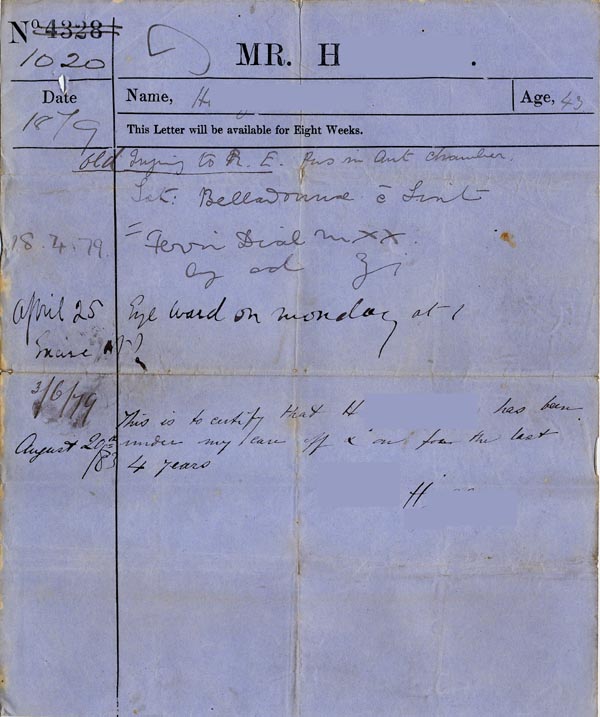 No 4328
1020
MR. H .
Date
1879
Name, H
Age, 43
This Letter will be available for Eight Weeks.
old Injury to R. E. Pus in Ant chamber.
Belladonnae c̄ Lint
18.4.79.
Ferri Dial m XX
ad ℥i
April 25
Eye ward on monday at 1
3/6/79
This is to certify that H has been
August 20th /83
under my care off & on for the last
4 years
H